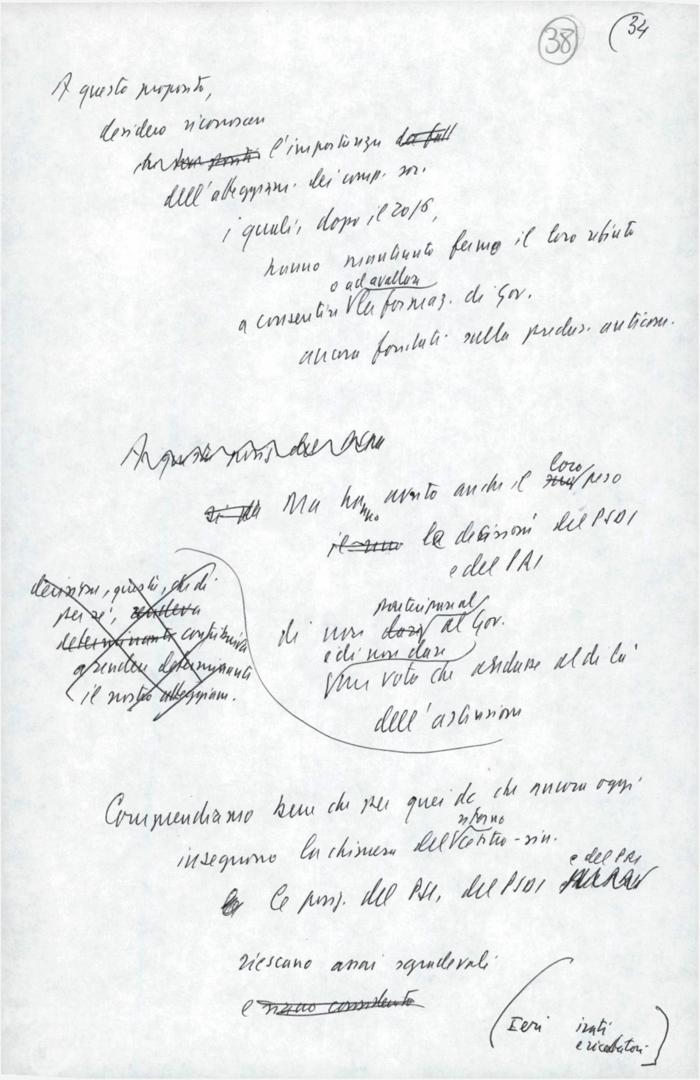 38 (34
A questo proposito,
desidero riconoscere
l'importanza
dell'atteggiam. dei comp. soc.
i quali, dopo il 20/6,
hanno mantenuto fermo il loro rifiuto
o ad avallare
a consentire la formaz. di Gov.
ancora fondati sulla preclus. anticom.
Ma hanno avuto anche il loro peso
le decisioni del PSDI
e del PRI
decisioni, queste, che di
per sé, rendeva
determinante contribuiva
a rendere determinante
il nostro atteggiam.
partecipare
di non dare al Gov.
e di non dare
un voto che andasse al di là
dell'astensione
Comprendiamo bene che per quei dc che ancora oggi
inseguono la chimera del centro-sin.
e del PRI
le posiz. del PSI, del PSDI
riescano assai sgradevoli
e siano considerate
(Ieri irati
e ricattatori)